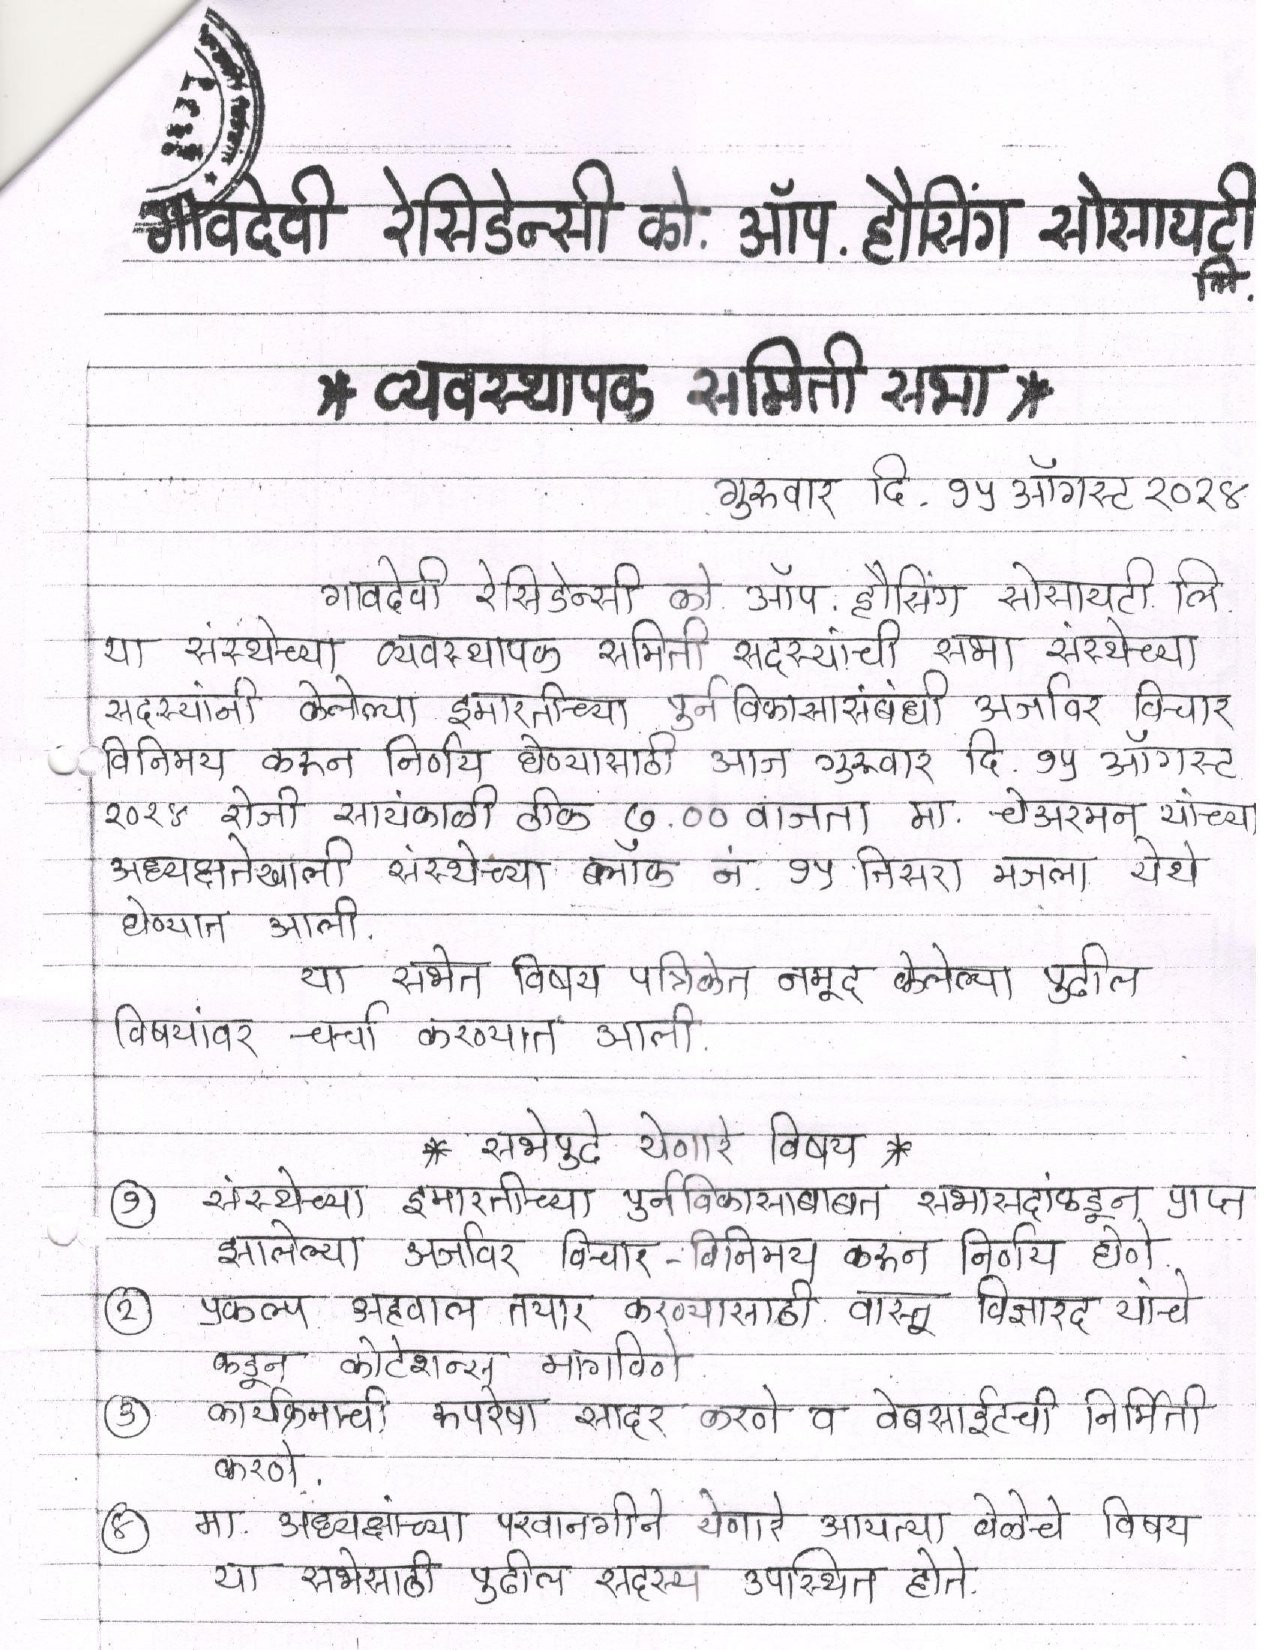 गावदेवी रेसिडेन्सी को. ऑप. हौसिंग सोसायटी
लि.
* व्यवस्थापक समिती सभा *
गुरूवार दि. १५ ऑगस्ट २०२४
गावदेवी रेसिडेन्सी को. ऑप. हौसिंग सोसायटी. लि.
या संस्थेच्या व्यवस्थापक समिती सदस्यांची सभा संस्थेच्या
सदस्यांनी केलेल्या इमारतीच्या पुर्नविकासासंबंधी अर्जावर विचार
विनिमय करून निर्णय घेण्यासाठी आज गुरूवार दि. १५ ऑगस्ट
२०२४ रोजी सायंकाळी ठीक ७.०० वाजता मा. चेअरमन यांच्या
अध्यक्षतेखाली संस्थेच्या ब्लॉक नं. १५ तिसरा मजला येथे
घेण्यात आली.
या सभेत विषय पत्रिकेत नमूद केलेल्या पुढील
विषयांवर चर्चा करण्यात आली.
* सभेपुढे येणारे विषय *
१ संस्थेच्या इमारतीच्या पुर्नविकासाबाबत सभासदांकडून प्राप्त
झालेल्या अर्जावर विचार-विनिमय करून निर्णय घेणे.
२ प्रकल्प अहवाल तयार करण्यासाठी वास्तू विशारद यांचे
कडून कोटेशन्स मागविणे
३ कार्यक्रमाची रूपरेषा सादर करणे व वेबसाईटची निर्मिती
करणे.
४ मा. अध्यक्षांच्या परवानगीने येणारे आयत्या वेळेचे विषय
या सभेसाठी पुढील सदस्य उपस्थित होते.